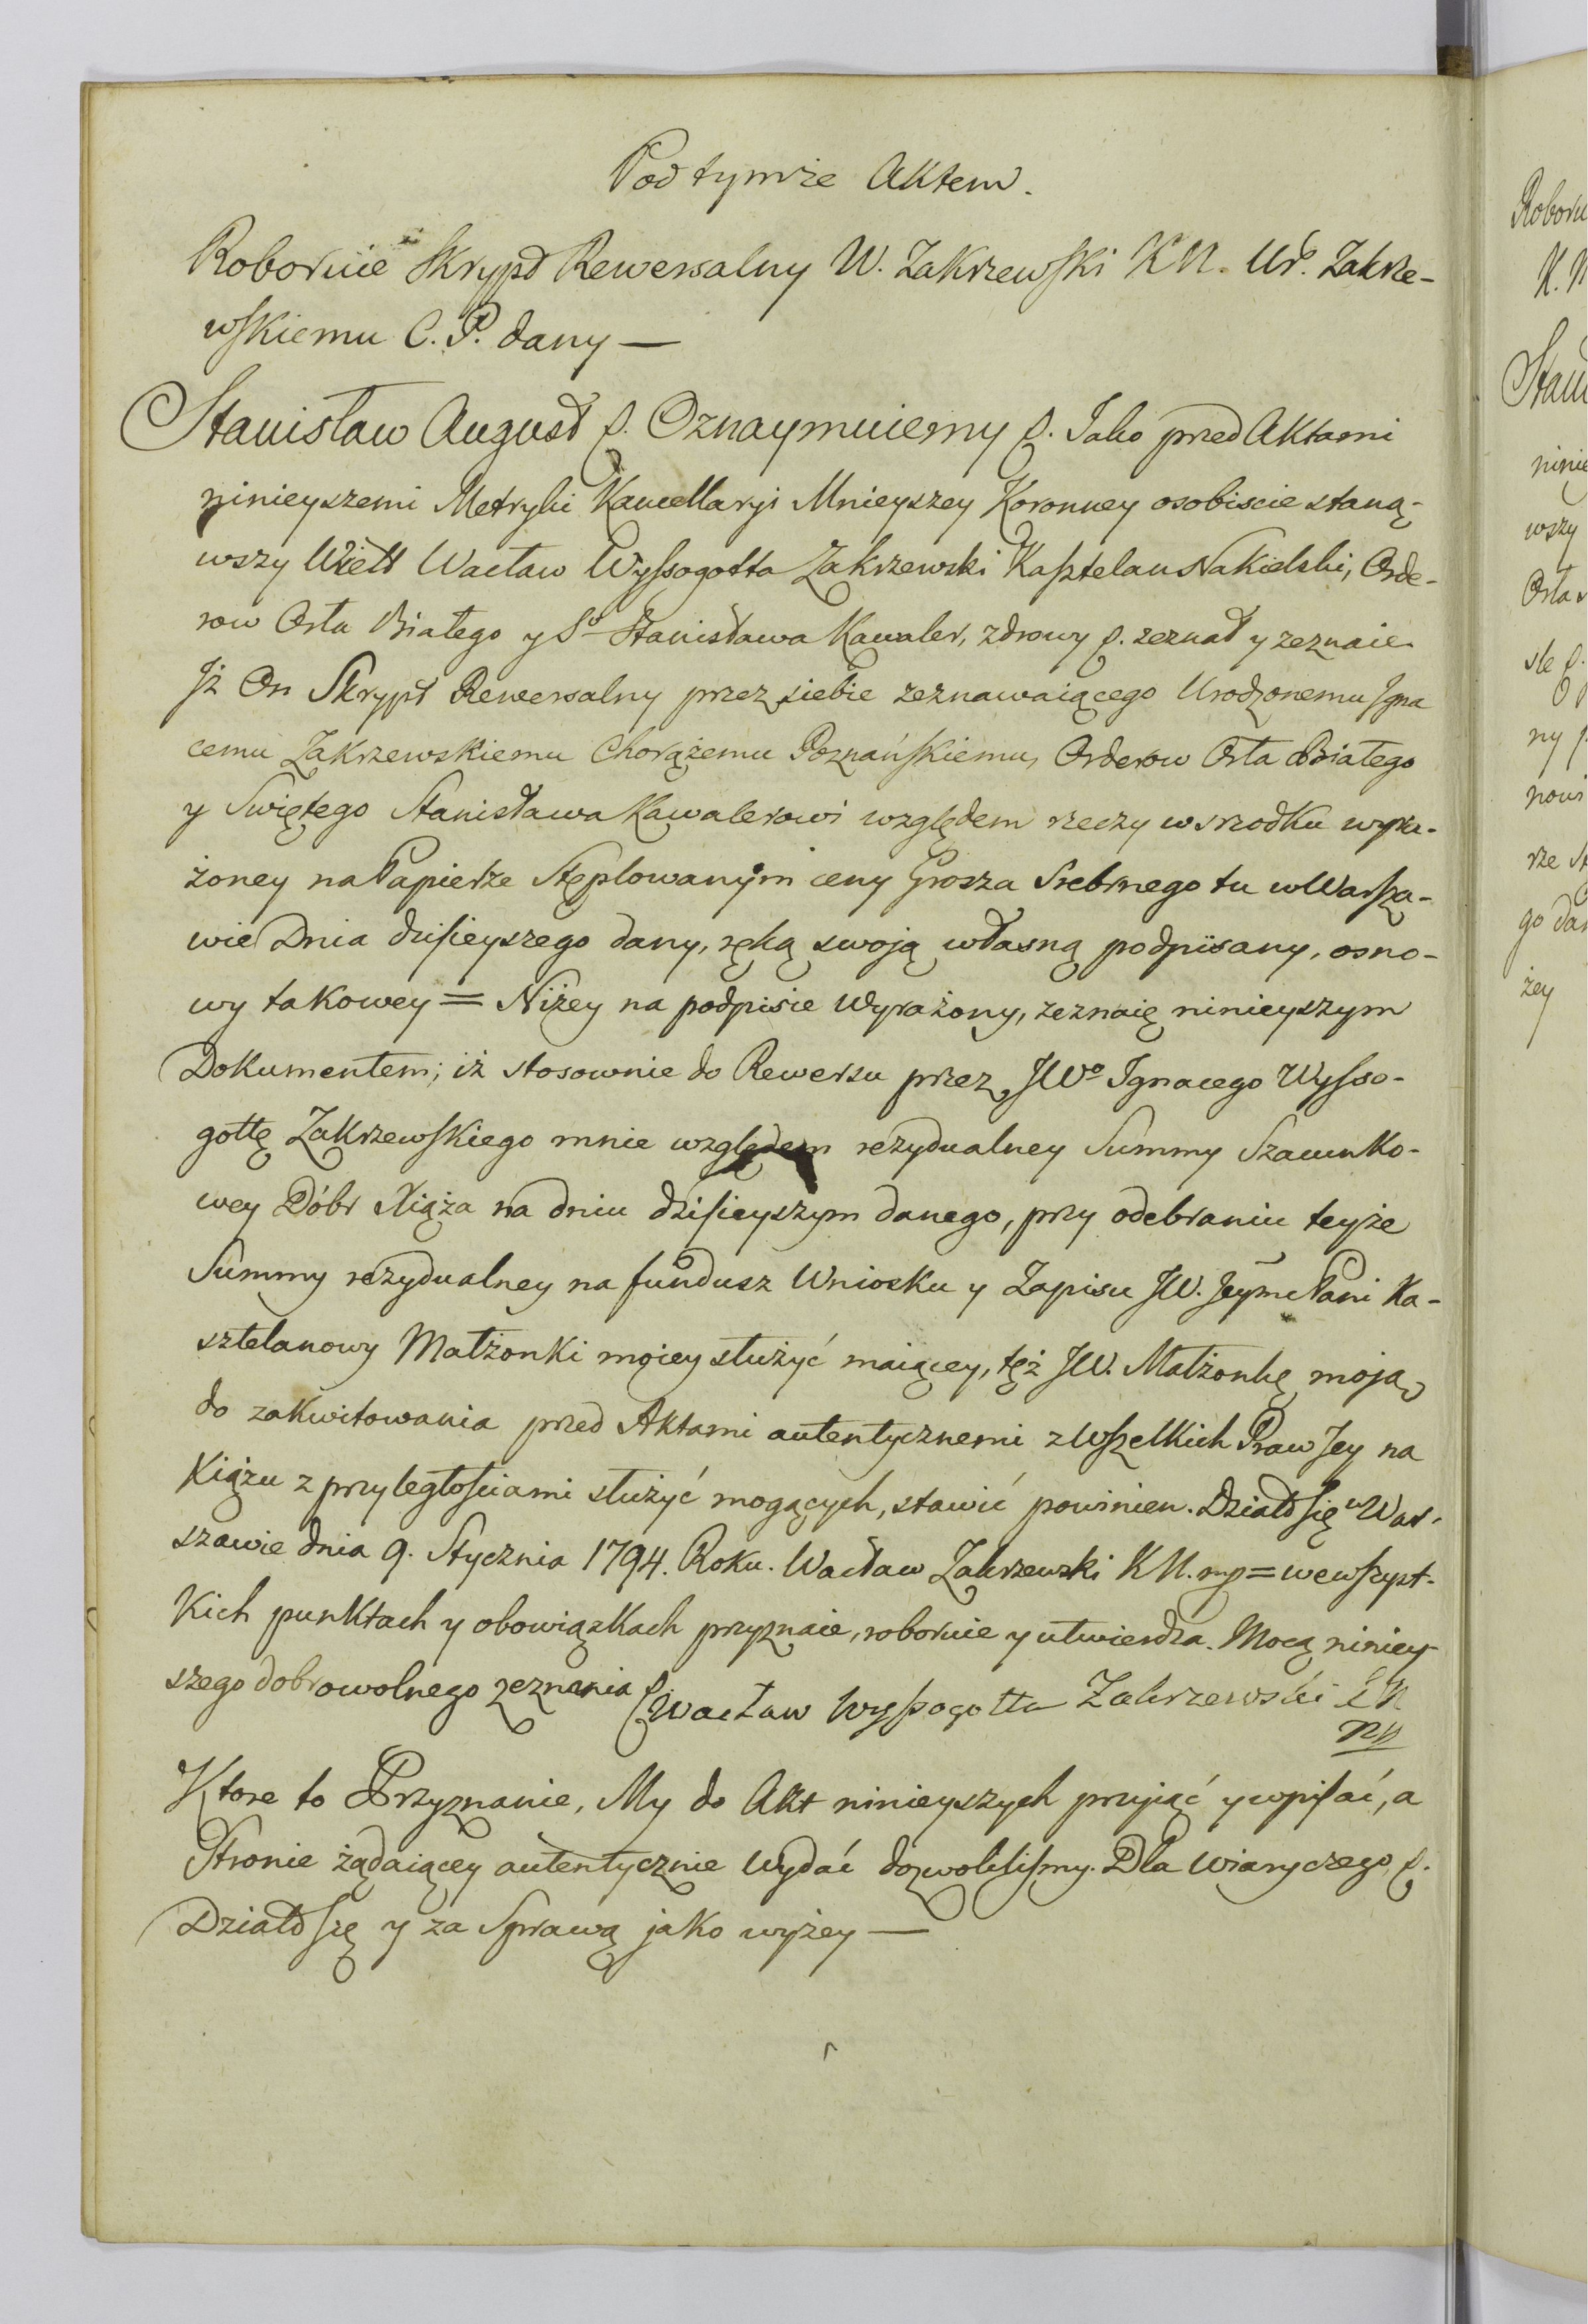 Pod tymże Aktem.
Roboruie Skrypt Rewersalny W. Zakrzewski K N. Ur. Zakrze-
wskiemu C. P. dany —
Stanisław August p. Oznaymuiemy p. Jako przed Aktami
ninieyszemi Metryki Kancellaryi Mnieyszey Koronney osobiscie staną-
wszy Wiel Wacław Wyssogotta Zakrzewski Kasztelan Nakielski, Orde-
row Orła Białego y So Stanisława Kawaler, zdrowy p. zeznał y zeznaie
Jż On Skrypt Rewersalny przez siebie zeznawaiącego Urodzonemu Jgna
cemu Zakrzewskiemu Chorążemu Poznańskiemu, Orderow Orła Białego
y Swiętego Stanisława Kawalerowi względem rzeczy wsrzodku wyra-
żoney na Papierze Stęplowanym ceny Grosza Srebrnego tu w Warsza-
wie Dnia dzisieyszego dany, ręką swoją własną podpisany, osno-
wy takowey = Niżey na podpisie wyrażony, zeznaię ninieyszym
Dokumentem; iż stosownie do Rewersu przez JWo Jgnacego Wysso-
gottę Zakrzewskiego mnie względem rezydualney Summy Szacunko-
wey Dóbr Xiąża na dniu dzisieyszym danego, przy odebraniu teyże
Summy rezydualney na fundusz Wniosku y Zapisu JW. Jeymć Pani Ka-
sztelanowy Małżonki moiey służyć maiącey, tęż JW. Małżonkę moją
do zakwitowania przed Aktami autentycznemi z wszelkich Praw Jey na
Xiążu z przyległosciami służyć mogących, stawić powinien. Działo się w War-
szawie dnia 9. Stycznia 1794. Roku. Wacław Zakrzewski K N. mp = wewszyst-
kich punktach y obowiązkach przyznaie, roboruie y utwierdza. Mocą niniey-
szego dobrowolnego zeznania p. Wacław Wyssogotta Zakrzewski K N
mp
Ktore to Przyznanie, My do Akt ninieyszych przyjąć y wpisać, a
Stronie żądaiącey autentycznie wydać dozwolilismy. Dla wiary czego p.
Działo się y za Sprawą jako wyżey —